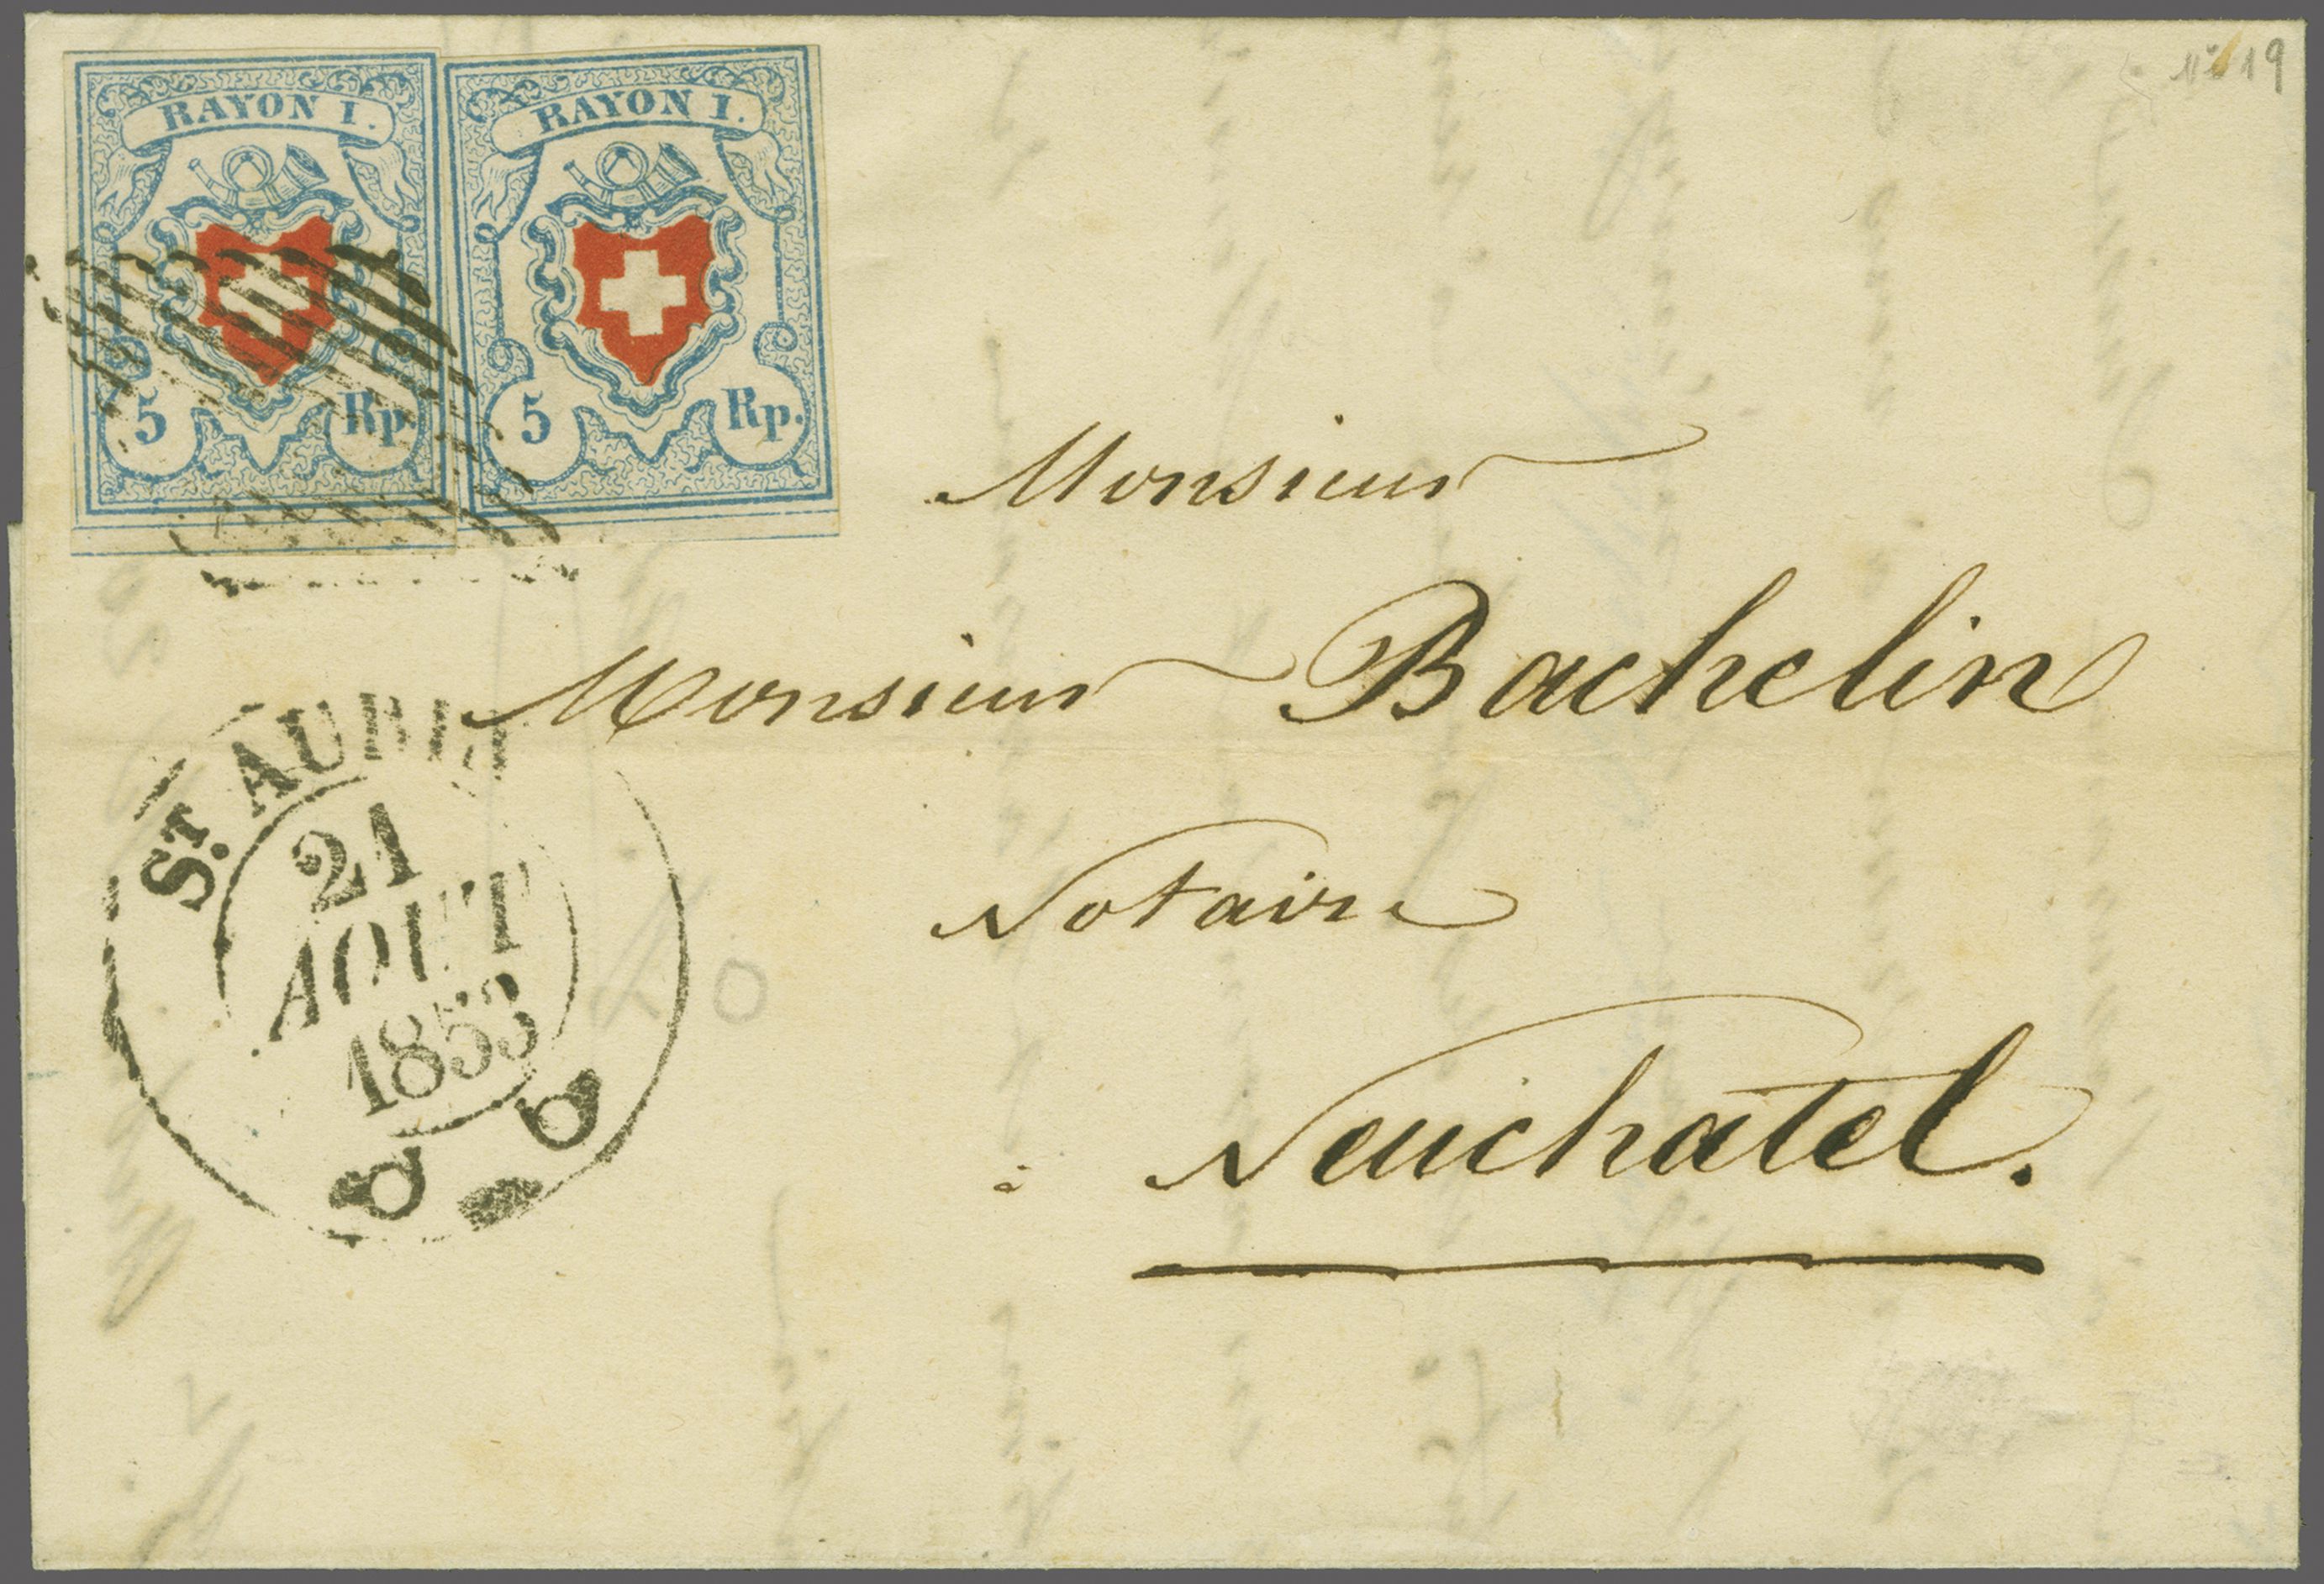 N° 19
RAYON I.
RAYON I.
5 Rp.
5 Rp.
Monsieur
Monsieur Bachelin
Notaire
à Neuchâtel.
ST. AUBIN
21
AOUT
1853